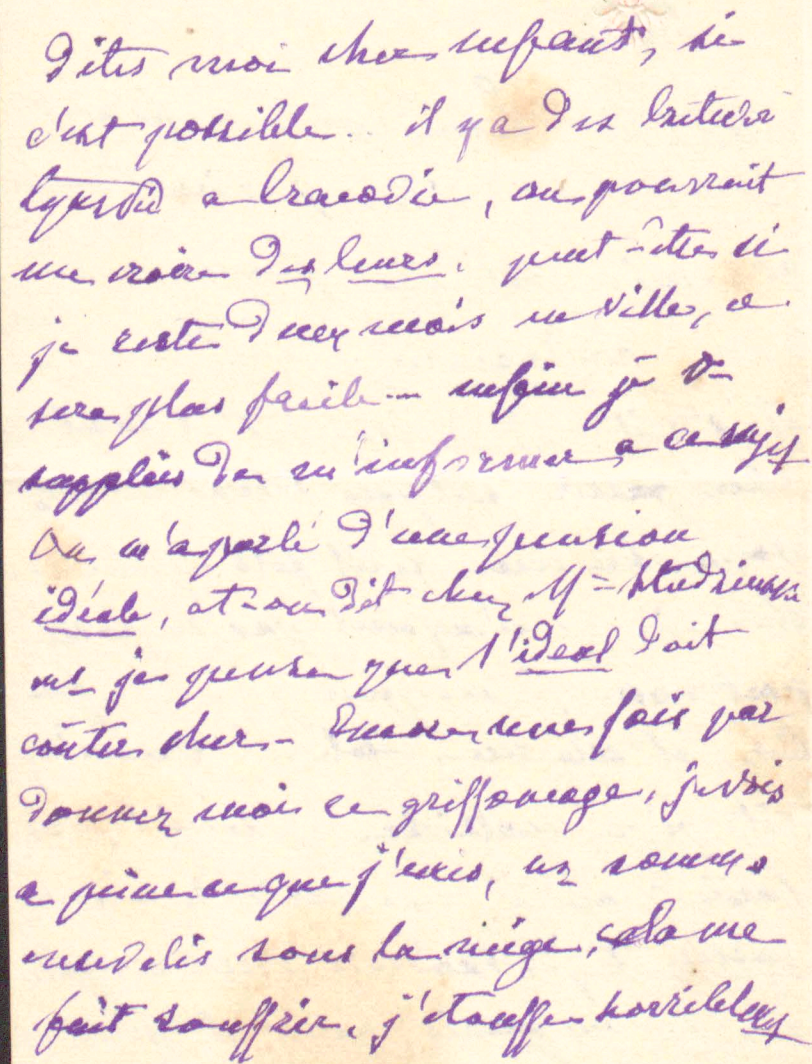 dites moi cher enfant, si
c'est possible.. il y a des
a Cracovie, on pourrait
me croire des leurs. peut-être si
je reste deux mois en ville, ce
sera plus facile — enfin je vs
supplie de m'informer a ce sujet
On m'a parlé d'une pension
idéale, at-on dit chez Mme
ms je pense que l'ideal doit
coûter cher – Encore une fois par
donnez moi ce griffonage, je vois
a peine ce que j'ecris, ns sommes
ensevelis sous la neige, cela me
fait souffrir, j'étouffe horriblemt